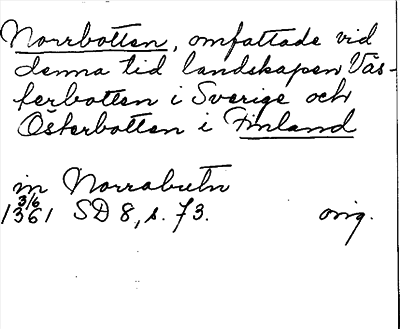 Norrbotten, omfattade vid
denna tid landskapen Väs-
terbotten i Sverige och
Österbotten i Finland
in Norrabutn
3/6
1361 SD 8, s. 73. orig.